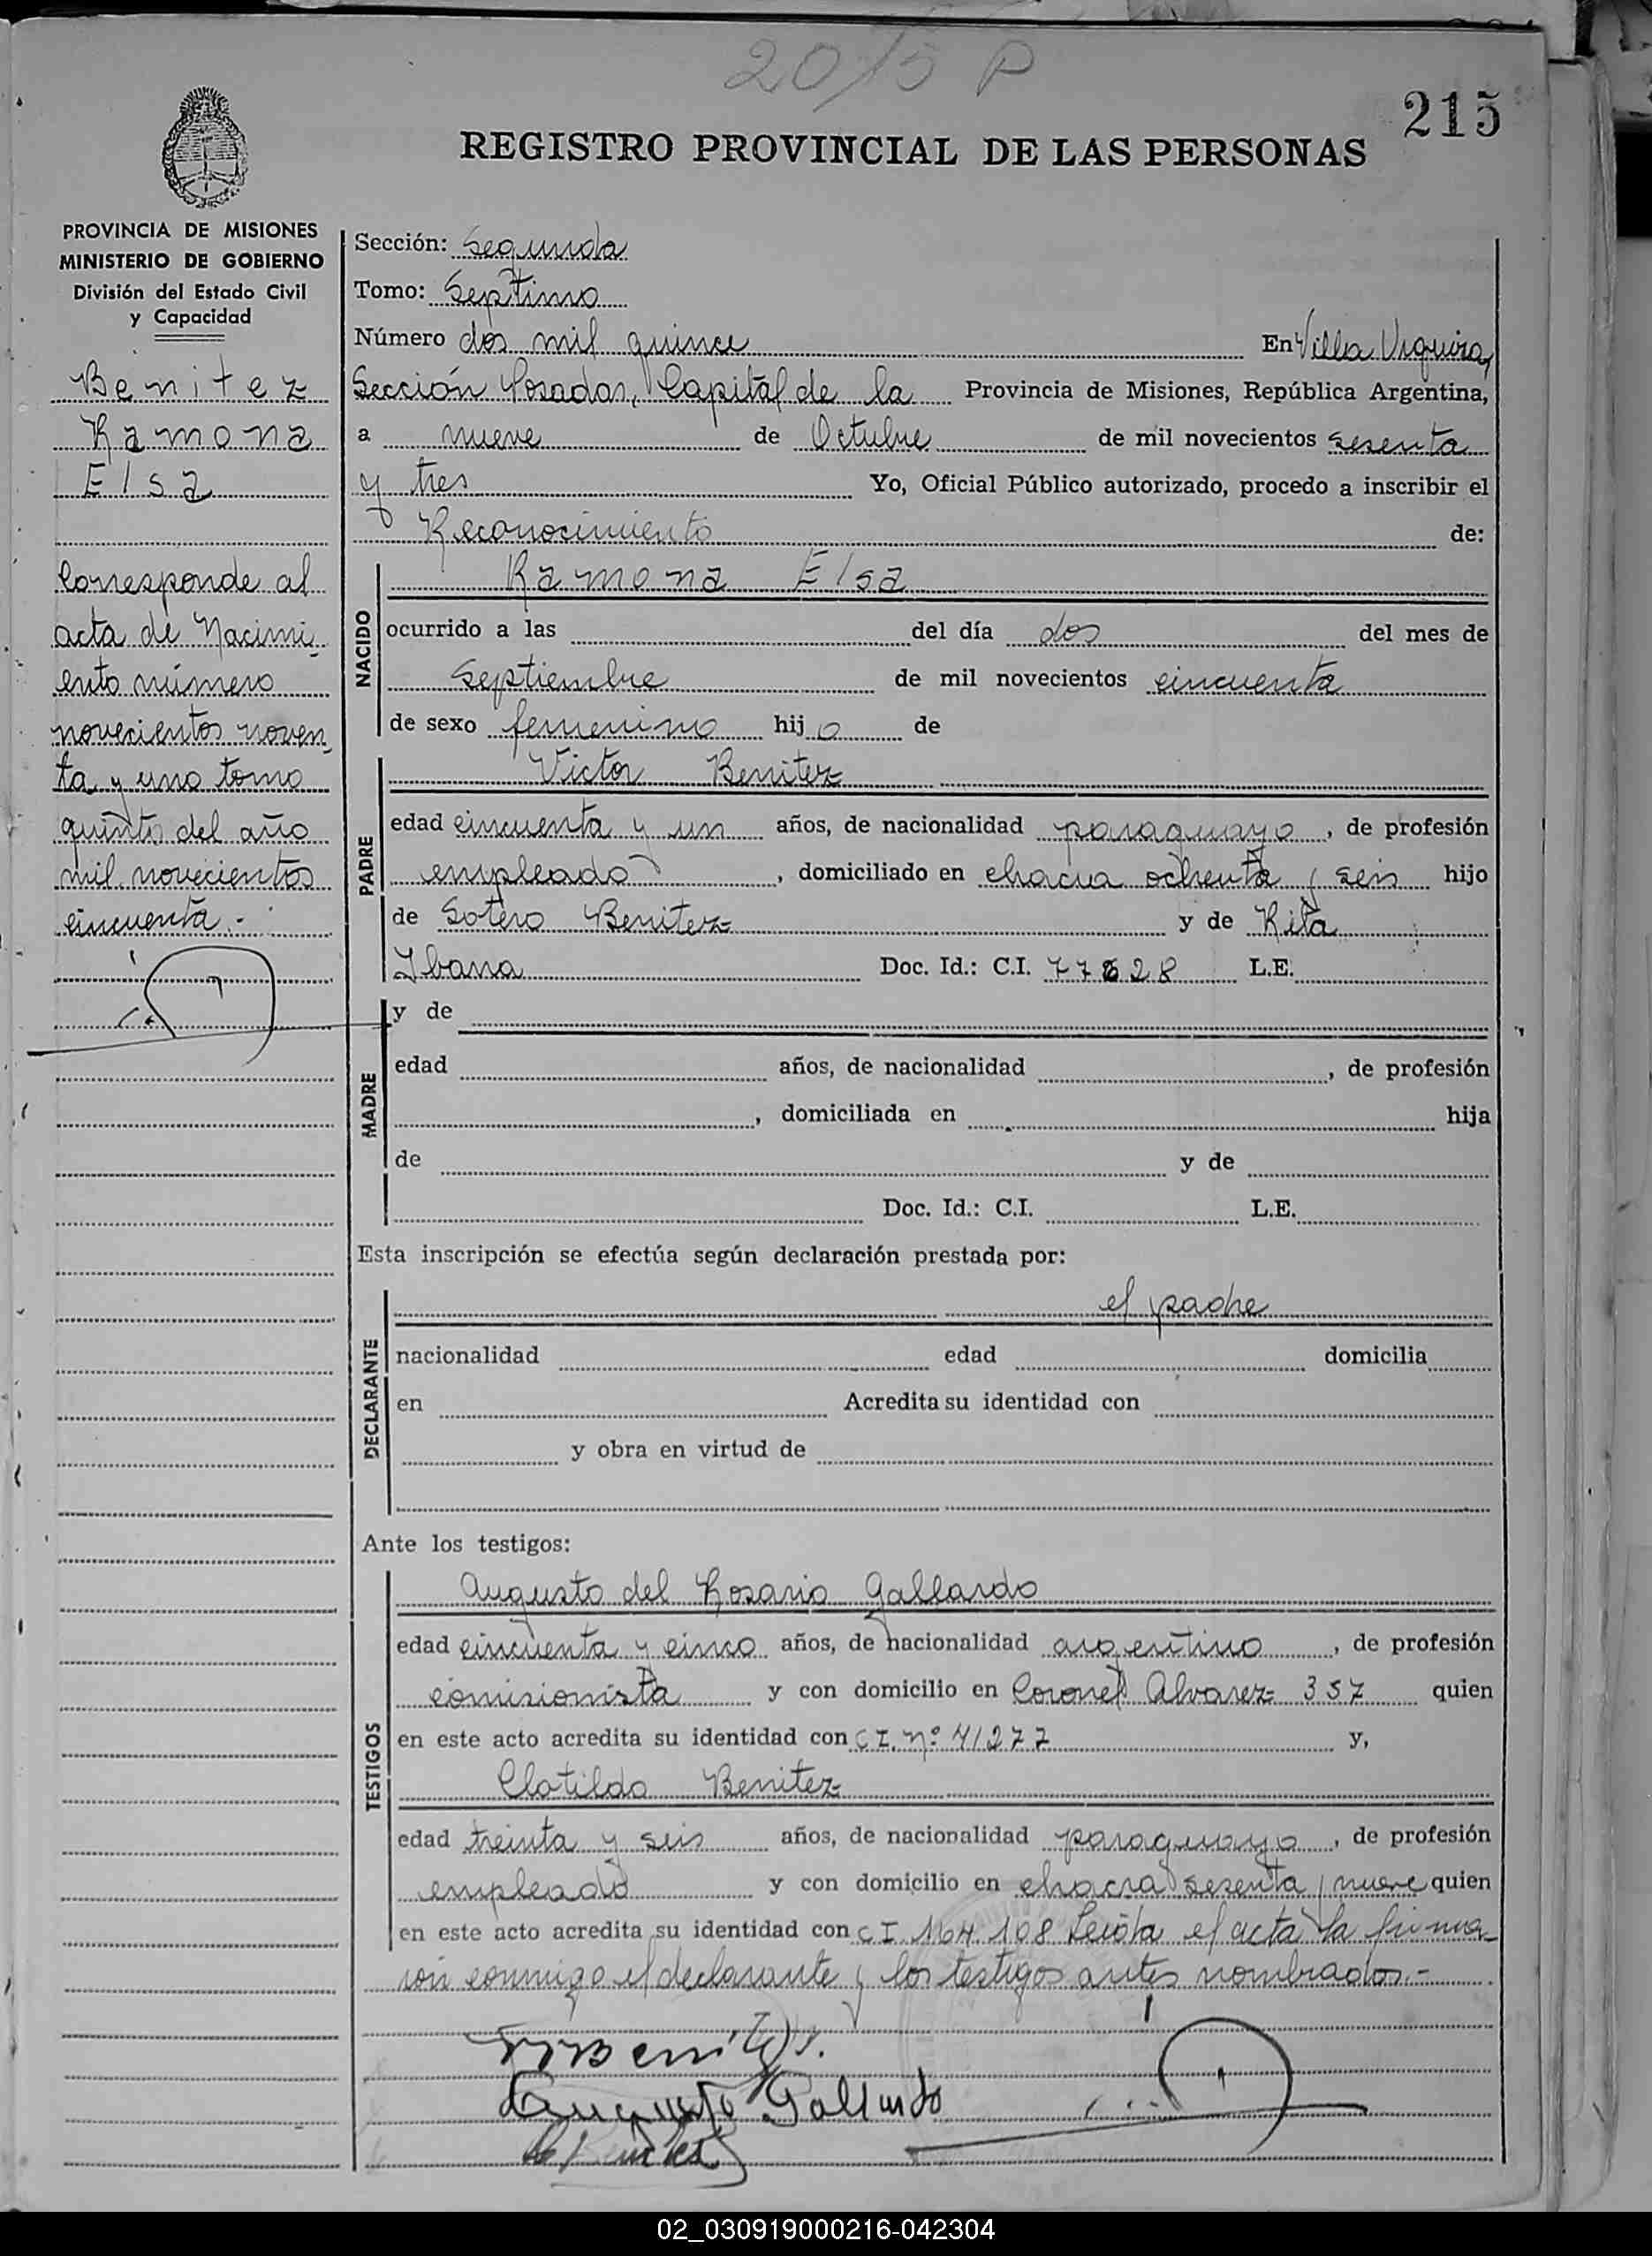 2015 P
215
REGISTRO PROVINCIAL DE LAS PERSONAS
PROVINCIA DE MISIONES
MINISTERIO DE GOBIERNO
División del Estado Civil
y Capacidad
Benitez
Ramona
Elsa
Corresponde al
acta de Nacimi-
ento número
novecientos noven-
ta y uno tomo
quinto del año
mil novecientos
cincuenta.-
Sección: Segunda
Tomo: Septimo
Número dos mil quince En Villa Urquiza,
Sección Posadas, Capital de la Provincia de Misiones, República Argentina,
a nueve de Octubre de mil novecientos sesenta
y tres Yo, Oficial Público autorizado, procedo a inscribir el
Reconocimiento de:
NACIDO
Ramona Elsa
ocurrido a las del día dos del mes de
Septiembre de mil novecientos cincuenta
de sexo femenino hijo de
PADRE
Victor Benitez
edad cincuenta y un años, de nacionalidad paraguayo, de profesión
empleado, domiciliado en chacra ochenta y seis hijo
de Sotero Benitez y de Rita
Ibana Doc. Id.: C.I. 77628 L.E.
MADRE
y de
edad años, de nacionalidad , de profesión
, domiciliada en hija
de y de
Doc. Id.: C.I. L.E.
Esta inscripción se efectúa según declaración prestada por:
DECLARANTE
el padre
nacionalidad edad domicilia
en Acredita su identidad con
y obra en virtud de
Ante los testigos:
TESTIGOS
Augusto del Rosario Gallardo
edad cincuenta y cinco años, de nacionalidad argentino, de profesión
comisionista y con domicilio en Coronel Alvarez 357 quien
en este acto acredita su identidad con C I. nº 41277 y,
Clotildo Benitez
edad treinta y seis años, de nacionalidad paraguayo, de profesión
empleado y con domicilio en chacra sesenta y nueve quien
en este acto acredita su identidad con C I 164.108 Leida el acta la firma-
ron conmigo el declarante y los testigos antes nombrados.-
Augusto Gallardo
02_030919000216-042304